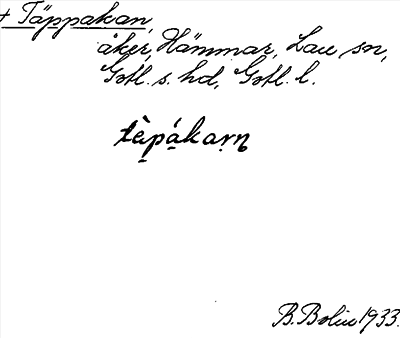 + Täppakan,
åker, Hämmar, Lau sn,
Gotl. s. hd, Gotl. l.
tèpákarn
B. Bolin 1933.